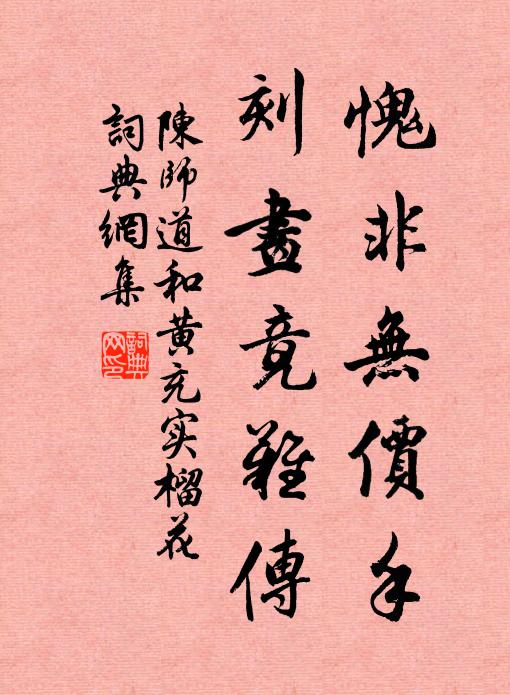 愧非無價手
刻畫竟難傳
陳師道和黄充实榴花
詞典網集
詞典
网印